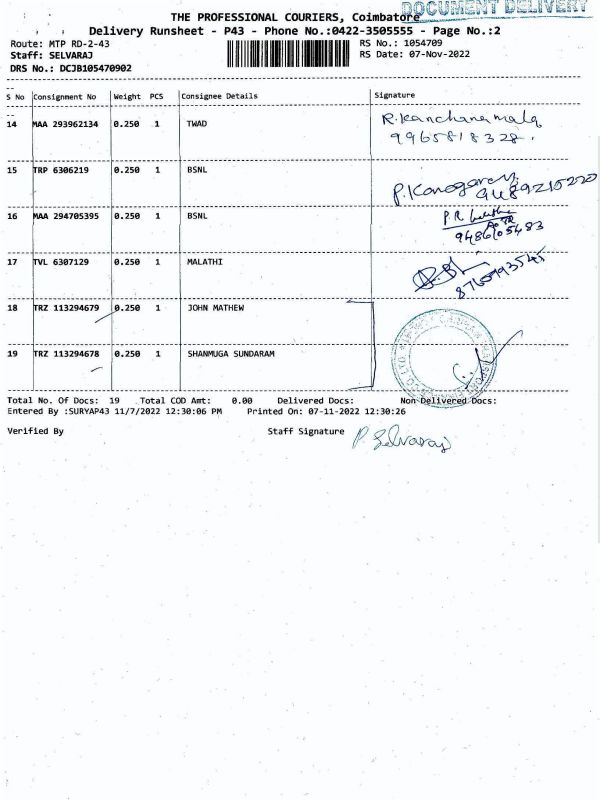 DOCUMENT DELIVERY
THE PROFESSIONAL COURIERS, Coimbatore
Delivery Runsheet - P43 - Phone No.:0422-3505555 - Page No.:2
Route: MTP RD-2-43 RS No.: 1054709
Staff: SELVARAJ RS Date: 07-Nov-2022
DRS No.: DCJB105470902
S No Consignment No Weight PCS Consignee Details Signature
14 MAA 293962134 0.250 1 TWAD R.Kanchanamala
9965818328.
15 TRP 6306219 0.250 1 BSNL
16 MAA 294705395 0.250 1 BSNL P.R
9486105483
17 TVL 6307129 0.250 1 MALATHI
18 TRZ 113294679 0.250 1 JOHN MATHEW
19 TRZ 113294678 0.250 1 SHANMUGA SUNDARAM
Total No. Of Docs: 19 Total COD Amt: 0.00 Delivered Docs: Non-Delivered Docs:
Entered By :SURYAP43 11/7/2022 12:30:06 PM Printed On: 07-11-2022 12:30:26
Verified By Staff Signature P. Selvaraj